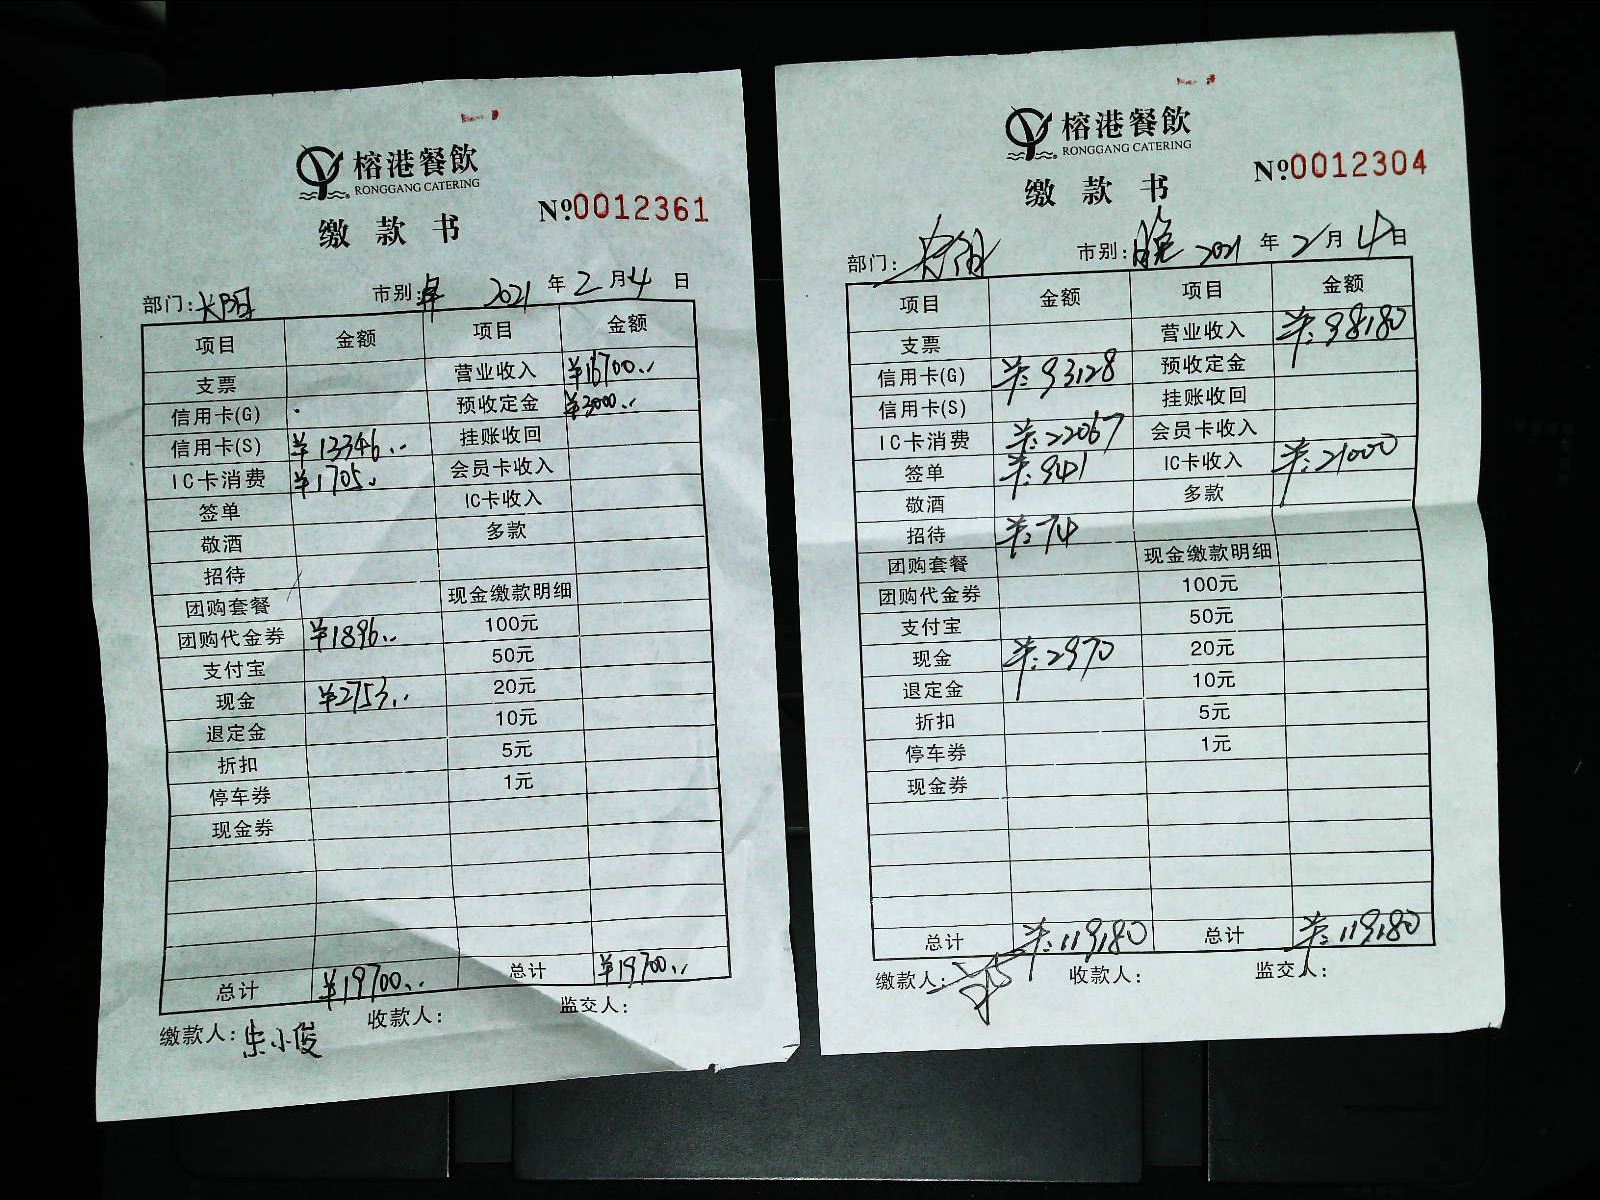 榕港餐飲
RONGGANG CATERING
缴款书
№0012361
部门: 长阳 市别: 2021 年 2 月 4 日
项目 金额 项目 金额
支票 营业收入 ¥16700..
信用卡(G) 预收定金 ¥3000..
信用卡(S) ¥13346.. 挂账收回
IC卡消费 ¥1705. 会员卡收入
签单 IC卡收入
敬酒 多款
招待
团购套餐 现金缴款明细
团购代金券 ¥1896.. 100元
支付宝 50元
现金 ¥2753.. 20元
退定金 10元
折扣 5元
停车券 1元
现金券
总计 ¥19700.. 总计 ¥19700..
缴款人: 朱小俊 收款人: 监交人:
榕港餐飲
RONGGANG CATERING
缴款书
№0012304
部门: 市别: 晚 2021 年 2 月 4 日
项目 金额 项目 金额
支票 营业收入 ¥: 98180
信用卡(G) ¥: 93128 预收定金
信用卡(S) 挂账收回
IC卡消费 ¥: 22067 会员卡收入
签单 ¥: 941 IC卡收入 ¥: 21000
敬酒 多款
招待 ¥: 74
团购套餐 现金缴款明细
团购代金券 100元
支付宝 50元
现金 ¥: 2970 20元
退定金 10元
折扣 5元
停车券 1元
现金券
总计 ¥: 119180 总计 ¥: 119180
缴款人: 收款人: 监交人: